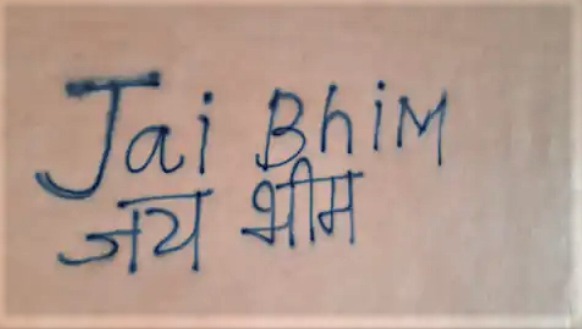 Jai BhiM
जय भीम